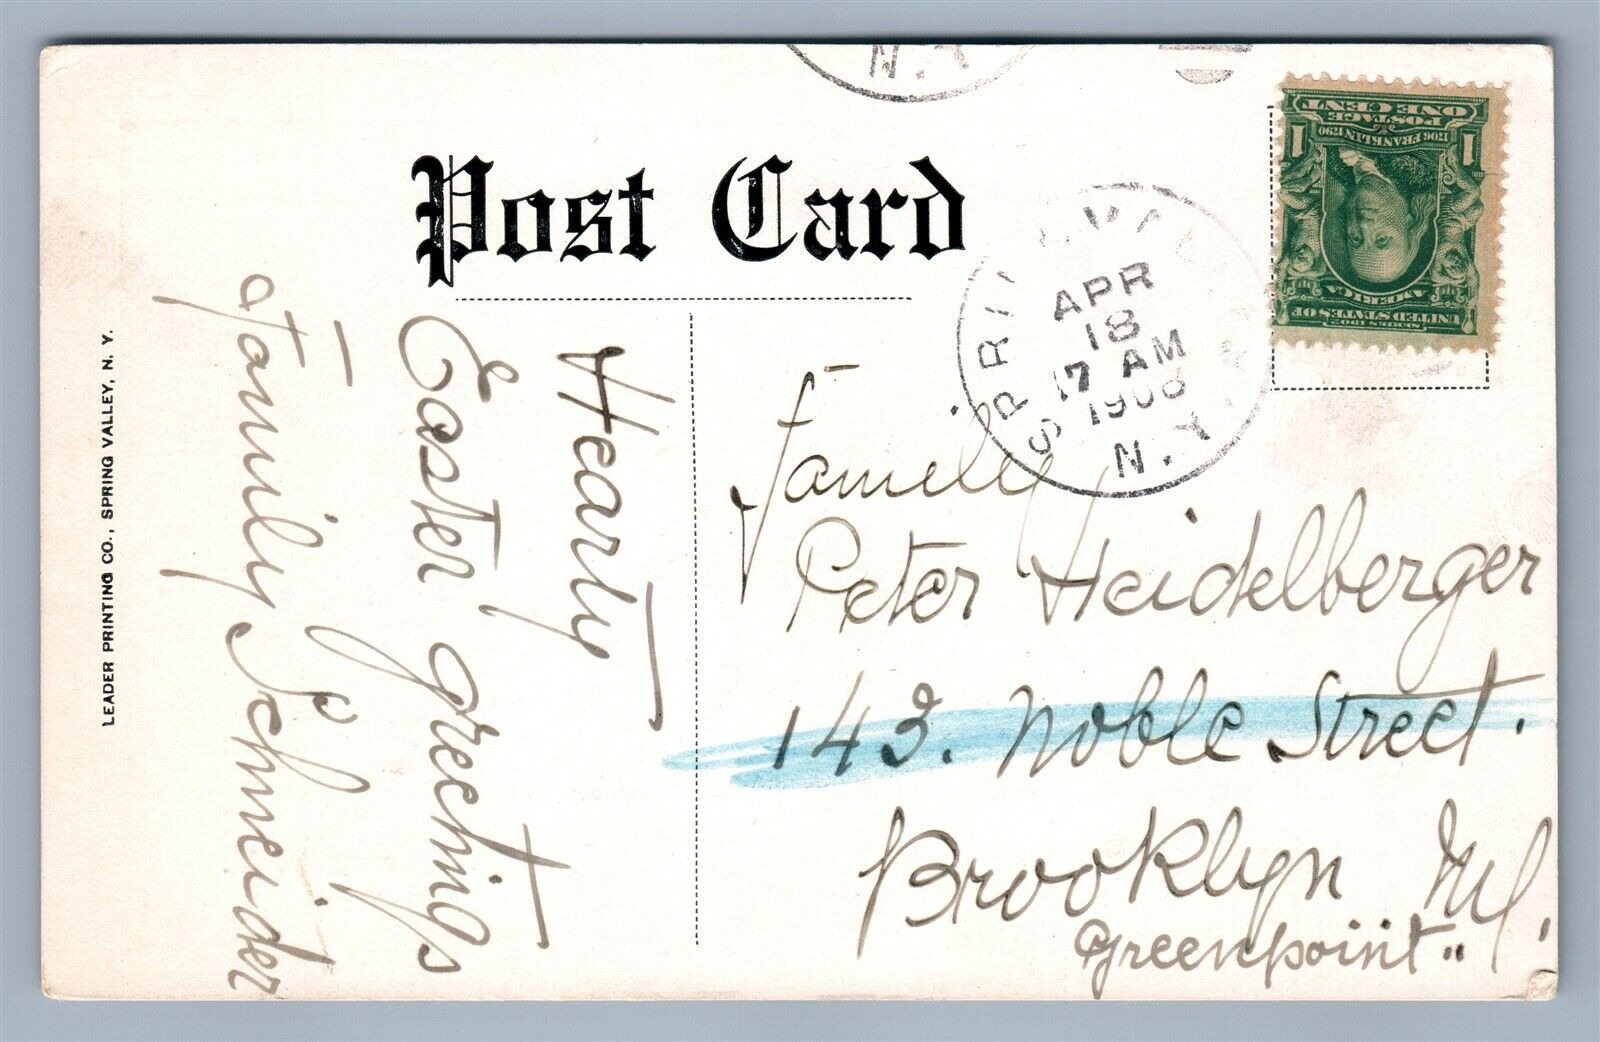 N.Y
Post Card
SPRING VALLEY
APR
18
7 AM
1908
N.Y.
1 1
ONE CENT
POSTAGE
1706 FRANKLIN 1790
AMERICA
UNITED STATES OF
SERIES 1902
Hearty
Easter greetings
Family Schneider
Family
Peter Heidelberger
143. Noble Street.
Brooklyn NY.
Greenpoint
LEADER PRINTING CO., SPRING VALLEY, N. Y.